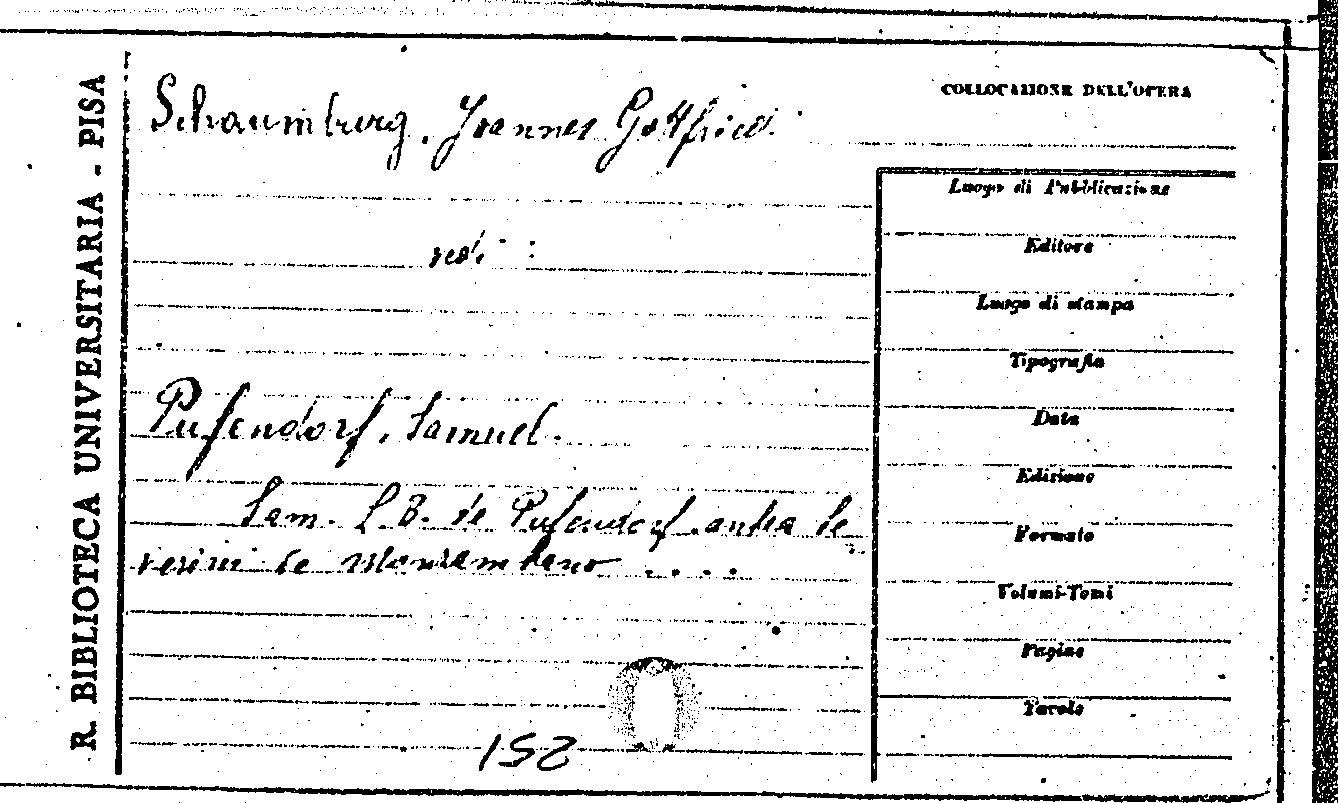 R. BIBLIOTECA UNIVERSITARIA - PISA
Schaumburg, Joannes Gottfried.
vedi :
Pufendorf, Samuel.
Sam. L. B. de Pufendorf antea Se
verini de Monzambano ....
152
COLLOCAZIONE DELL'OPERA
Luogo di Pubblicazione
Editore
Luogo di stampa
Tipografia
Data
Edizione
Formato
Volumi-Tomi
Pagine
Tavole